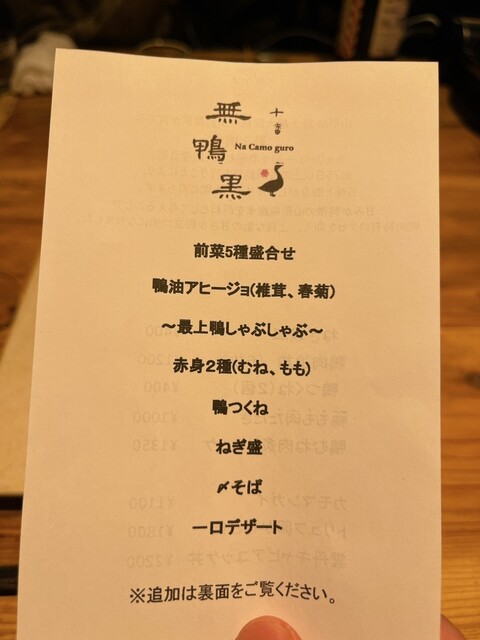 無鴨黒
十番
Na Camo guro
前菜5種盛合せ
鴨油アヒージョ(椎茸、春菊)
〜最上鴨しゃぶしゃぶ〜
赤身2種(むね、もも)
鴨つくね
ねぎ盛
〆そば
一口デザート
※追加は裏面をご覧ください。